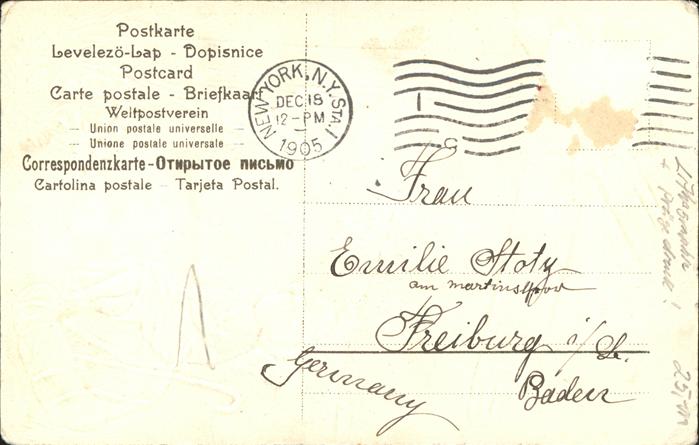 Postkarte
Levelezö-Lap - Dopisnice
Postcard
Carte postale - Briefkaart
Weltpostverein
— Union postale universelle —
— Unione postale universale —
Correspondenzkarte - Открытое письмо
Cartolina postale - Tarjeta Postal.
NEW YORK, N.Y. STA. 1
DEC 18
12-PM
1905
Frau
Emilie Stotz
am Martinsthor
Freiburg i/B.
Baden
Germany
Lithographie
+ Prägedruck!
25,-